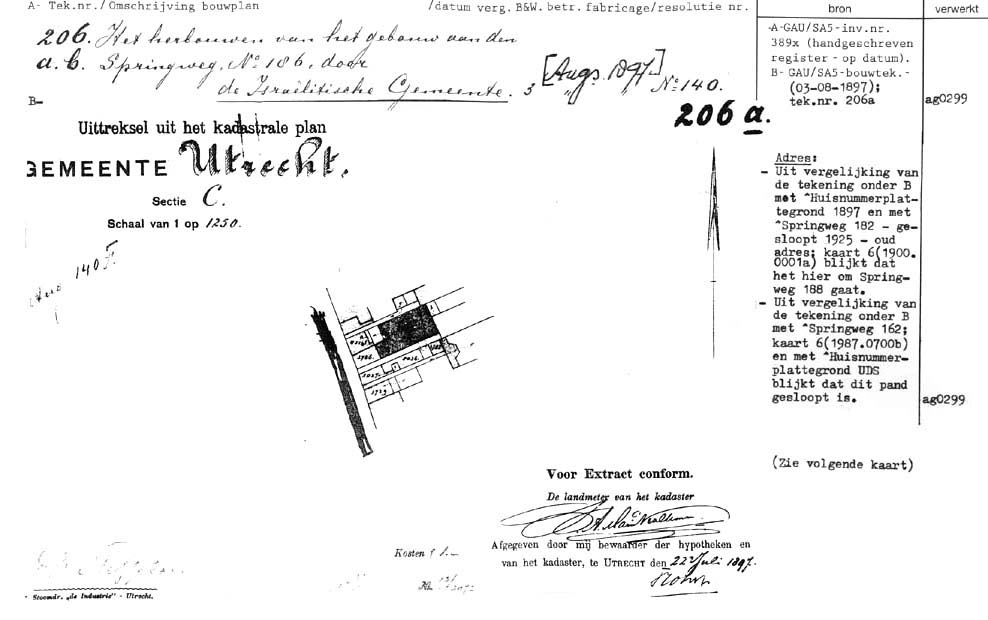 A- Tek.nr./Omschrijving bouwplan
/datum verg. B&W. betr. fabricage/resolutie nr.
bron
verwerkt
206. Het herbouwen van het gebouw aan den
a.b. Springweg, No 186, door
de Israëlitische Gemeente. 3 [Augs. 1897] No 140.
B-
206 a.
A-GAU/SA5-inv.nr.
389x (handgeschreven
register - op datum).
B- GAU/SA5-bouwtek.-
(03-08-1897);
tek.nr. 206a
ag0299
Uittreksel uit het kadastrale plan
GEMEENTE Utrecht.
Sectie C.
Schaal van 1 op 1250.
140 F.
Adres:
- Uit vergelijking van
de tekening onder B
met ^Huisnummerplat-
tegrond 1897 en met
^Springweg 182 - ge-
sloopt 1925 - oud
adres; kaart 6(1900.
0001a) blijkt dat
het hier om Spring-
weg 188 gaat.
- Uit vergelijking van
de tekening onder B
met ^Springweg 162;
kaart 6(1987.0700b)
en met ^Huisnummer-
plattegrond UDS
blijkt dat dit pand
gesloopt is.
ag0299
(Zie volgende kaart)
Voor Extract conform.
De landmeter van het kadaster
Afgegeven door mij bewaarder der hypotheken en
van het kadaster, te UTRECHT den 22 Juli 1897.
Kosten f 1.-
Stoomdr. „de Industrie" - Utrecht.